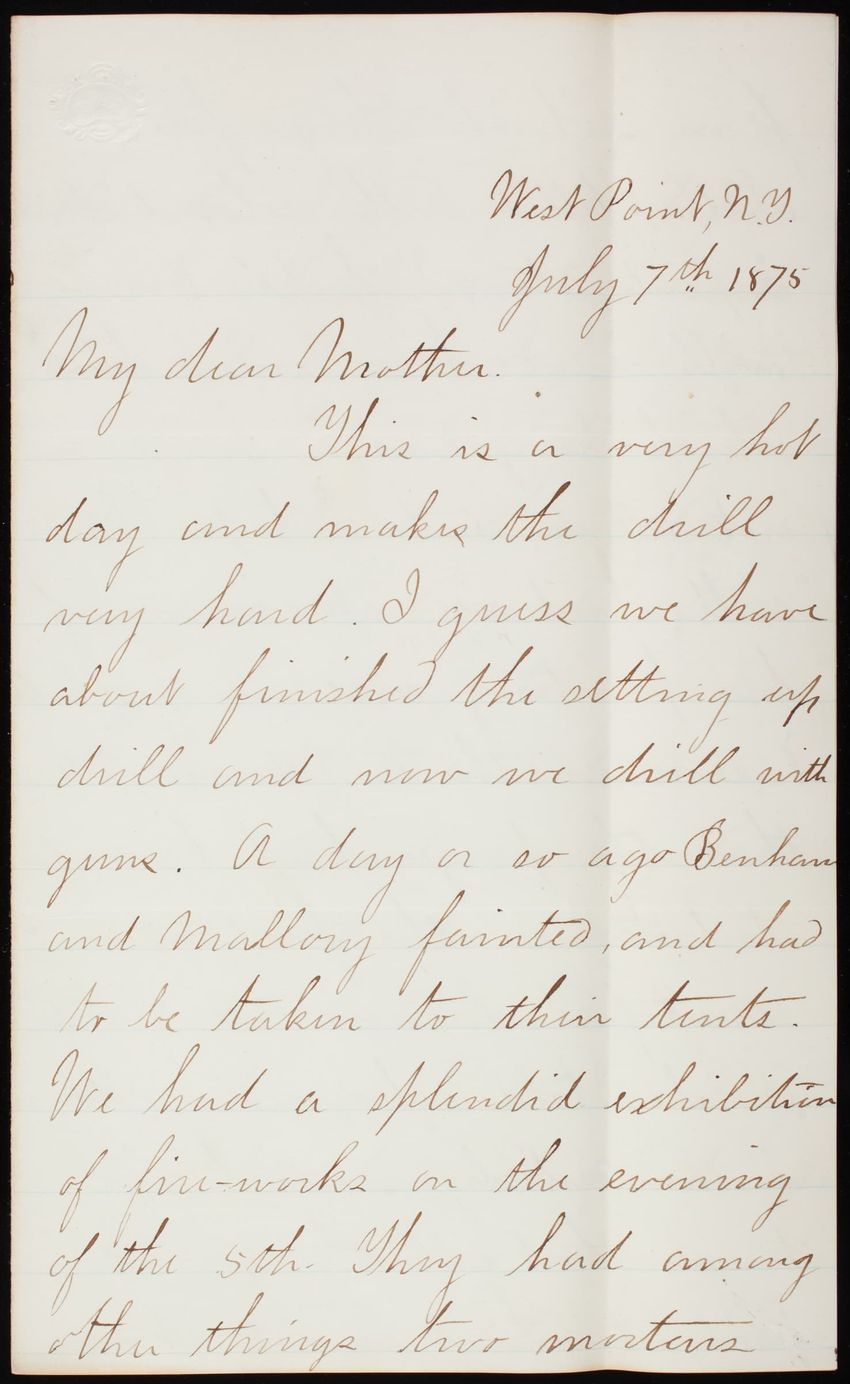 West Point, N.Y.
July 7th 1875
My dear Mother.
This is a very hot
day and makes the drill
very hard. I guess we have
about finished the setting up
drill and now we drill with
guns. A day or so ago Benham
and Mallory fainted, and had
to be taken to their tents.
We had a splendid exhibition
of fire-works on the evening
of the 5th. They had among
other things two mortars